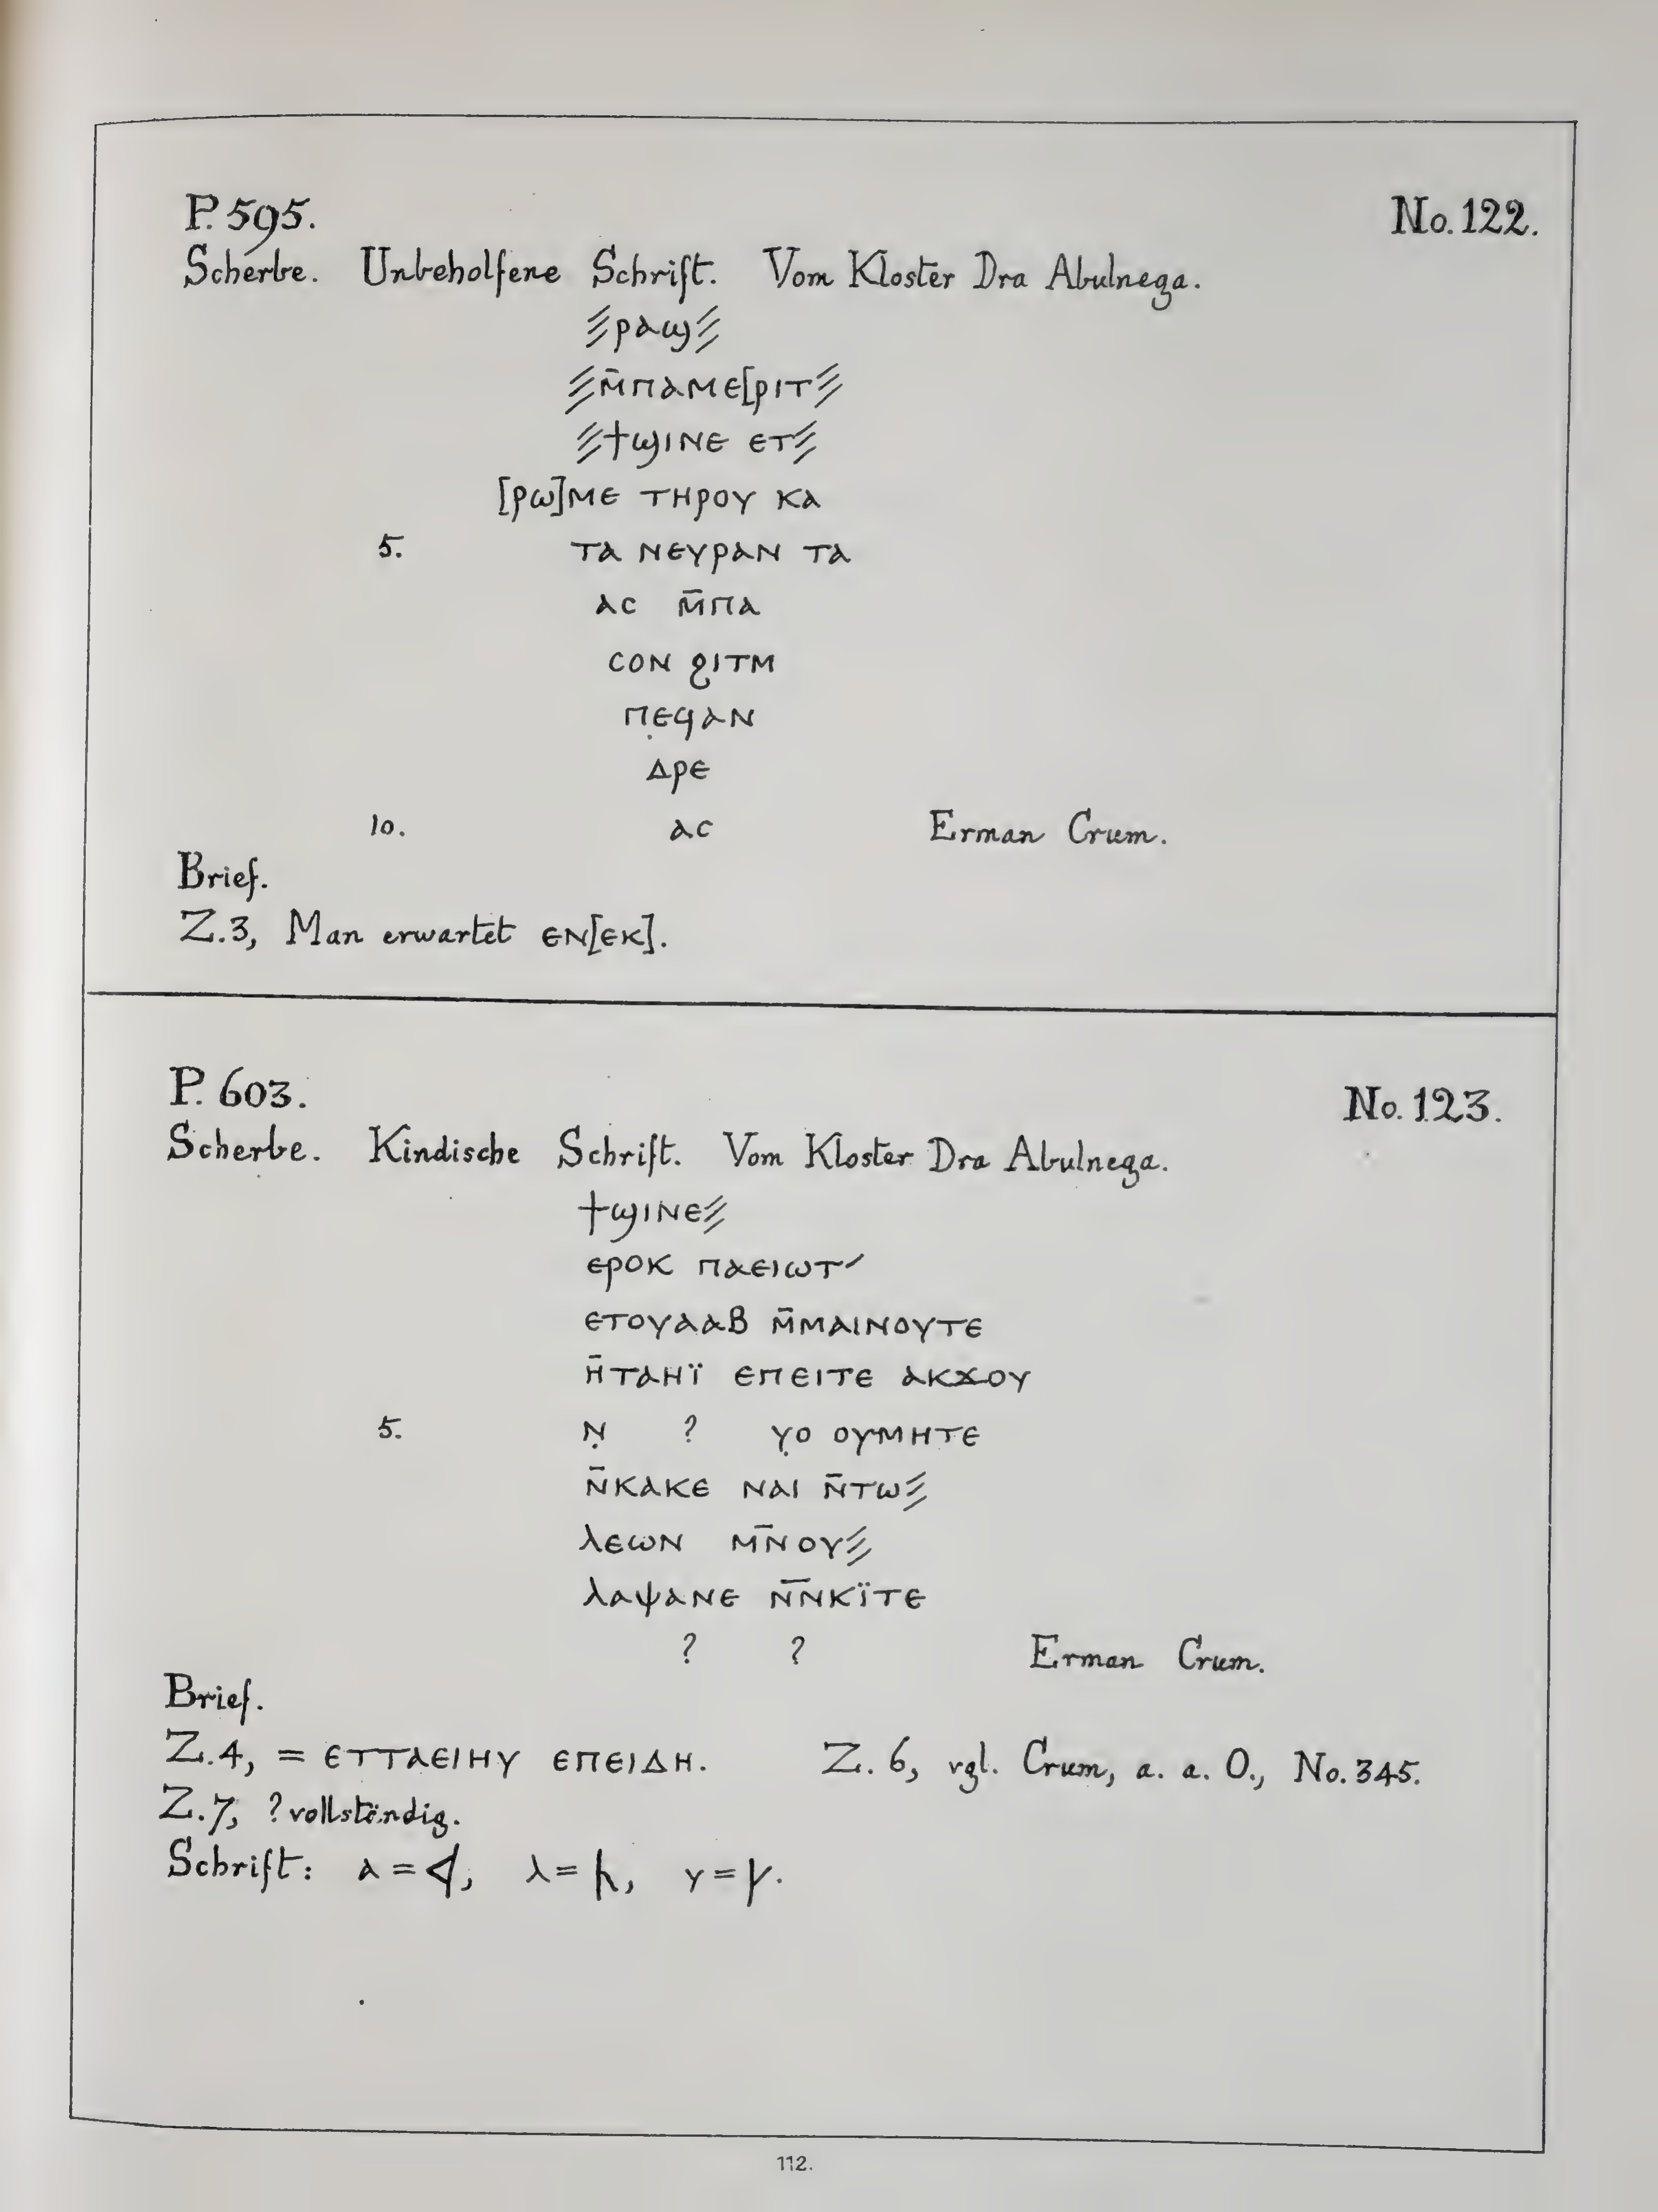 P. 595. No. 122.
Scherbe. Unbeholfene Schrift. Vom Kloster Dra Abulnega.
⫻ⲣⲁϣ⫻
⫻ⲙ̄ⲡⲁⲙⲉ[ⲣⲓⲧ⫻
⫻ϯϣⲓⲛⲉ ⲉⲧ⫻
[ⲣⲱ]ⲙⲉ ⲧⲏⲣⲟⲩ ⲕⲁ
5. ⲧⲁ ⲛⲉⲩⲣⲁⲛ ⲧⲁ
ⲁⲥ ⲙ̄ⲡⲁ
ⲥⲟⲛ ϩⲓⲧⲙ
ⲡⲉ̣ϥⲁⲛ
ⲇⲣⲉ
10. ⲁⲥ Erman Crum.
Brief.
Z. 3, Man erwartet ⲉⲛ[ⲉⲕ].
P. 603. No. 123.
Scherbe. Kindische Schrift. Vom Kloster Dra Abulnega.
ϯϣⲓⲛⲉ⫻
ⲉⲣⲟⲕ ⲡⲁⲉⲓⲱⲧ⸍
ⲉⲧⲟⲩⲁⲁⲃ ⲙ̄ⲙⲁⲓⲛⲟⲩⲧⲉ
ⲏ̄ⲧⲁⲏⲓ̈ ⲉⲡⲉⲓⲧⲉ ⲁⲕϫⲟⲩ
5. ⲛ̣ ? ⲩ̣ⲟ ⲟⲩⲙⲏⲧⲉ
ⲛ̄ⲕⲁⲕⲉ ⲛⲁⲓ ⲛ̄ⲧⲱ⫻
ⲗⲉⲱⲛ ⲙⲛ̄ⲟⲩ⫻
ⲗⲁⲯⲁⲛⲉ ⲛ̄ⲛ̄ⲕⲓ̈ⲧⲉ
? ? Erman Crum.
Brief.
Z. 4, = ⲉⲧⲧⲁⲉⲓⲏⲩ ⲉⲡⲉⲓⲇⲏ. Z. 6, vgl. Crum, a. a. O., No. 345.
Z. 7, ? vollständig.
Schrift: ⲁ = , ⲗ = , ⲩ = .
112.